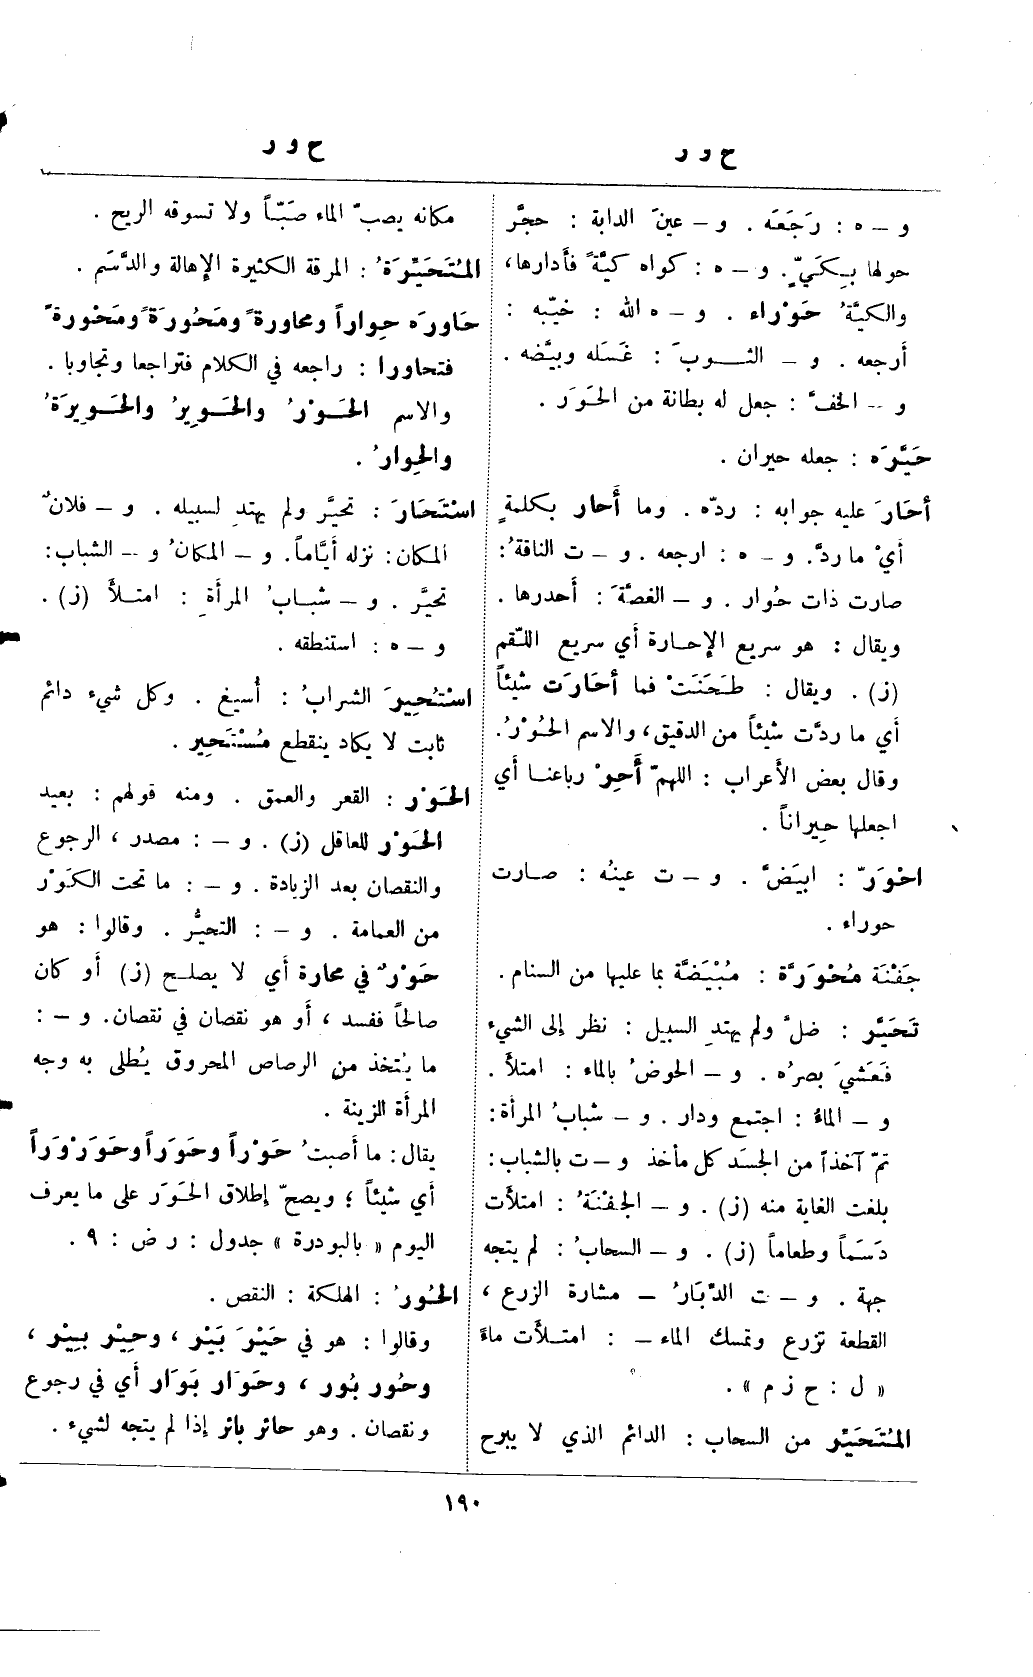 ح و ر
ح و ر
و – ه : رَجَعَه . و – عينَ الدابة : حجَّر
حولها بِكَيٍّ. و – ه : كواه كيَّةً فأدارها،
والكيَّةُ حَوْراء . و – ه الله : خيّبه :
أرجعه . و – الثــوبَ : غَسَله وبيَّضه .
و – الخفَّ : جعل له بطانة من الحَوَر .
حَيَّرَه : جعله حيران .
أحَارَ عليه جوابه : ردّه . وما أَحار بكلمةٍ
أيْ ما ردَّ. و – ه : ارجعه . و – ت الناقةُ:
صارت ذات حُوار . و – الغصَّةَ : أحدرها .
ويقال : هو سريع الإحـارة أي سريع اللّقم
(ز) . ويقال : طَحَنَتْ فما أحَارَت شيئاً
أي ما ردَّت شيئاً من الدقيق، والاسم الحُوْرُ.
وقال بعض الأعراب : اللهمّ أَحِرْ رباعنـا أي
اجعلها حِيراناً .
احْوَرّ : ابيَضَّ . و – ت عينُه : صـارت
حوراء .
جَفْنَة مُحْوَرَّة : مُبْيَضَّة بما عليها من السنام .
تَحَيَّر : ضلَّ ولم يهتدِ السبيل : نظر إلى الشيء
فَعَشيَ بصرُه . و – الحوضُ بالماء : امتلأ .
و – الماءُ : اجتمع ودار . و – شبابُ المرأة:
تمّ آخذاً من الجسَد كل مأخذ و – ت بالشباب:
بلغت الغاية منه (ز) . و – الجفْنَةُ : امتلأت
دَسَماً وطعاماً (ز) . و – السحابُ : لم يتجه
جهة . و – ت الدَّبَارُ – مشارة الزرع ،
القطعة تزرع وتمسك الماء – : امتـلأت ماءً
« ل : ح ز م » .
المُتَحَيِّر من السحاب : الدائم الذي لا يبرح
مكانه يصبّ الماء صَبّاً ولا تسوقه الريح .
المُتَحَيِّرَةُ : المرقة الكثيرة الإهالة والدَّسَم .
حَاورَه حِواراً ومحاورةً ومَحُورَةً ومَحْورةً
فتحاورا : راجعه في الكلام فتراجعا وتجاوبا .
والاسم الحَوْرُ والحَـوِيرُ والحَـوِيرَةُ
والحِوارُ .
اسْتَحَارَ : تحيَّر ولم يهتدِ لسبيله . و – فلانٌ
المكان: نزله أيَّاماً. و – المكانُ و – الشباب:
تحيَّر . و – شبـابُ المرأةِ : امتـلأ (ز) .
و – ه : استنطقه .
اسْتُحِيرَ الشرابُ : أُسيغ . وكل شيء دائم
ثابت لا يكاد ينقطع مُسْتَحِير .
الحَوْر : القعر والعمق . ومنه قولهم : بعيد
الحَوْر للعاقل (ز) . و – : مصدر ، الرجوع
والنقصان بعد الزيادة . و – : ما تحت الكَوْر
من العمامة . و – : التحيُّر . وقالوا : هو
حَوْرٌ في محارة أي لا يصلـح (ز) أو كان
صالحاً ففسد ، أو هو نقصان في نقصان. و – :
ما يُتخذ من الرصاص المحروق يُطلى به وجه
المرأة الزينة .
يقال: ما أصبتُ حَوْراً وحَوَراً وحَوَرْوَراً
أي شيئاً ؛ ويصحّ إطلاق الحَوَر على ما يعرف
اليوم « بالبودرة » جدول : ر ض : ٩ .
الحُورُ : الهلكة : النقص .
وقالوا : هو في حَيْرَ بَيْر ، وحِيْر بِيْر ،
وحُور بُور ، وحَوَار بَوَار أي في رجوع
ونقصان. وهو حائر بائر إذا لم يتجه لشيء .
١٩٠